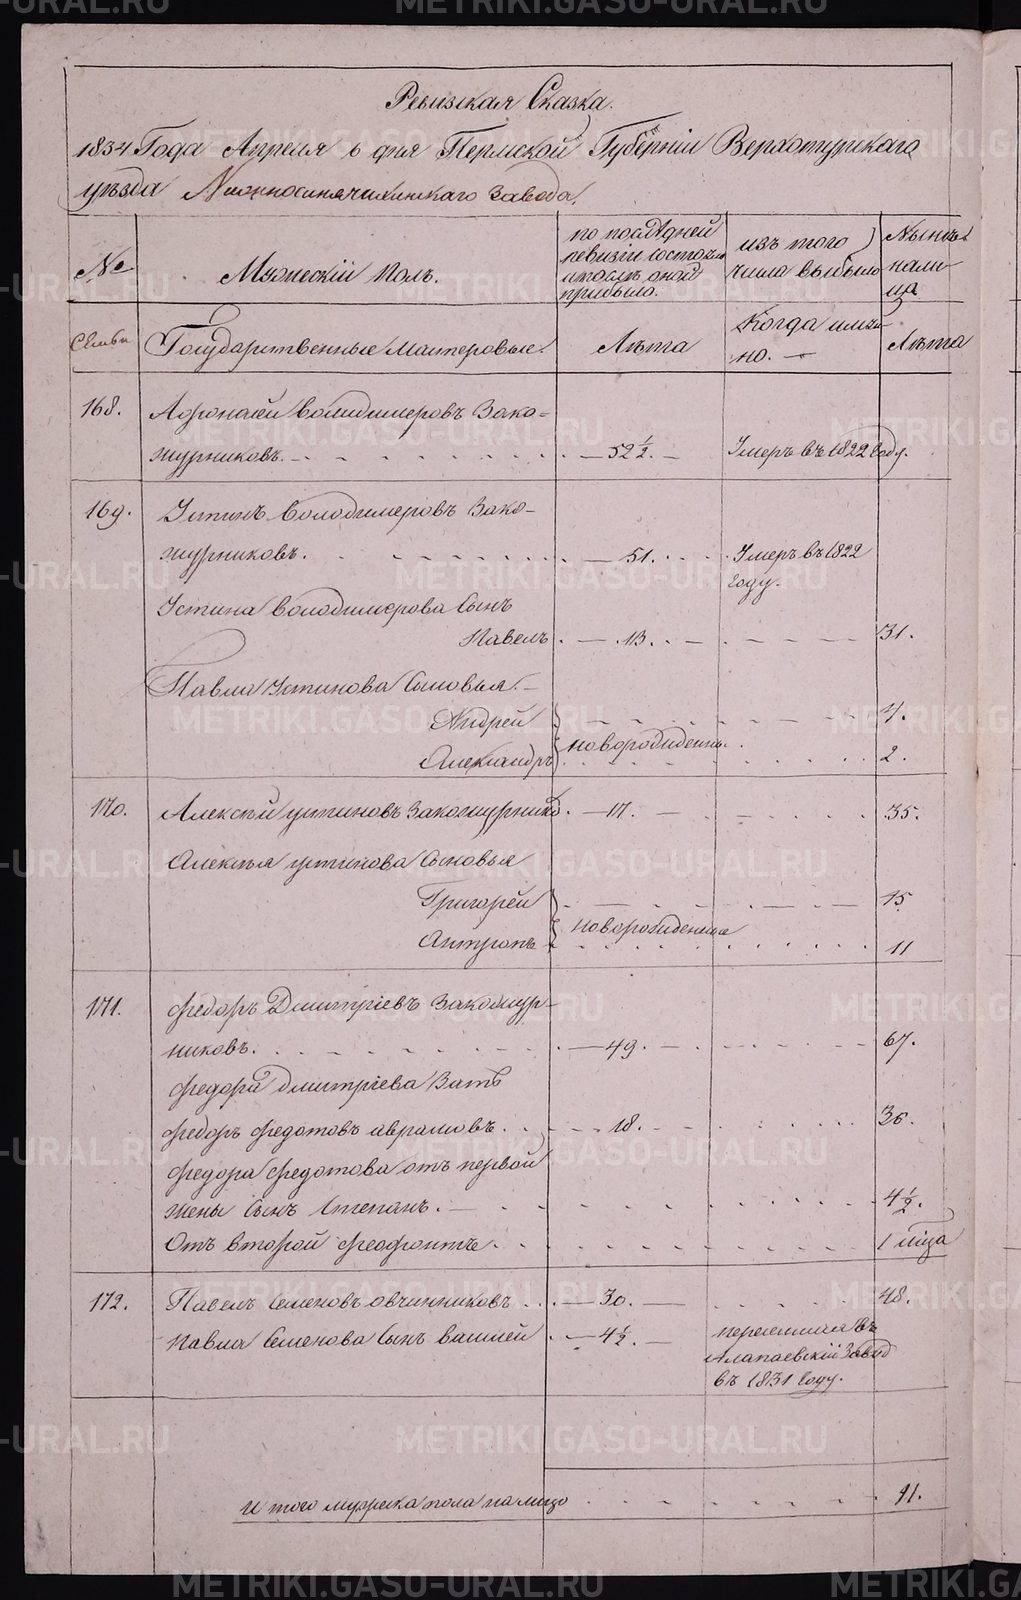 Ревизская Сказка.
1834 Года Апреля 6 дня Пермской Губерніи Верхотурскаго
уѣзда Нижносинячихинскаго завода,
№
Мужескій Полъ.
по последней
ревизіи состояло
и послѣ оной
прибыло.
изъ того
числа выбыло
Нынѣ
нали-
ца
Семьи
Государственные мастеровые.
Лѣта
Когда имян-
но. —
Лѣта
168. Афонасей Володимеровъ Зако-
журниковъ. — 52 1/2. — Умеръ въ 1822 году.
169. Устинъ Володимеровъ Зако-
журниковъ. — 51. Умеръ въ 1822
году.
Устина Володимерова Сынъ
Павелъ — 13. 31.
Павла Устинова Сыновья. —
Андрей 4.
новорожденны
Александръ 2.
170. Алексѣй устиновъ Закожурнико — 17. — 35.
Алексѣя устинова Сыновья
Григорей 15
новорожденные
Антропъ 11
171. Федоръ Дмитріевъ Закожур-
никовъ. — 49. — 67.
Федора Дмитріева Зать
Федоръ Федотовъ аврамовъ. 18. — 36.
Федора Федотова отъ первой
жены Сынъ Степанъ. — 4 1/2.
Отъ второй Феофонтъ. 1
172. Павелъ Семеновъ овчинниковъ — 30. — 48.
Павла Семенова Сынъ василей — 4 1/2. —
въ
Алапаевскій Завод
въ 1831 году.
и того мужеска пола на лицо 11.
METRIKI.GASO-URAL.RU